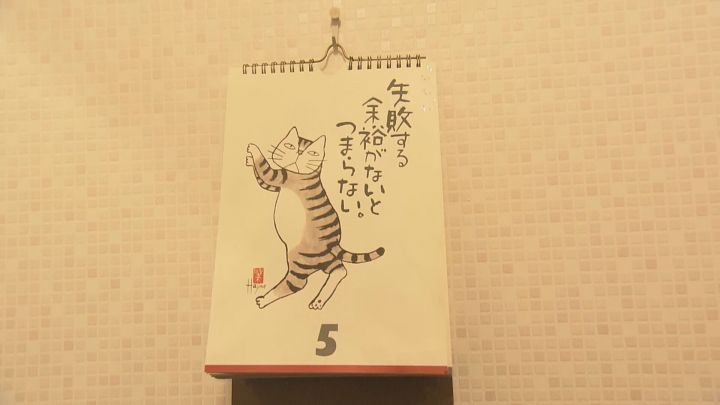 失敗する
余裕がないと
つまらない。
Hajime
5